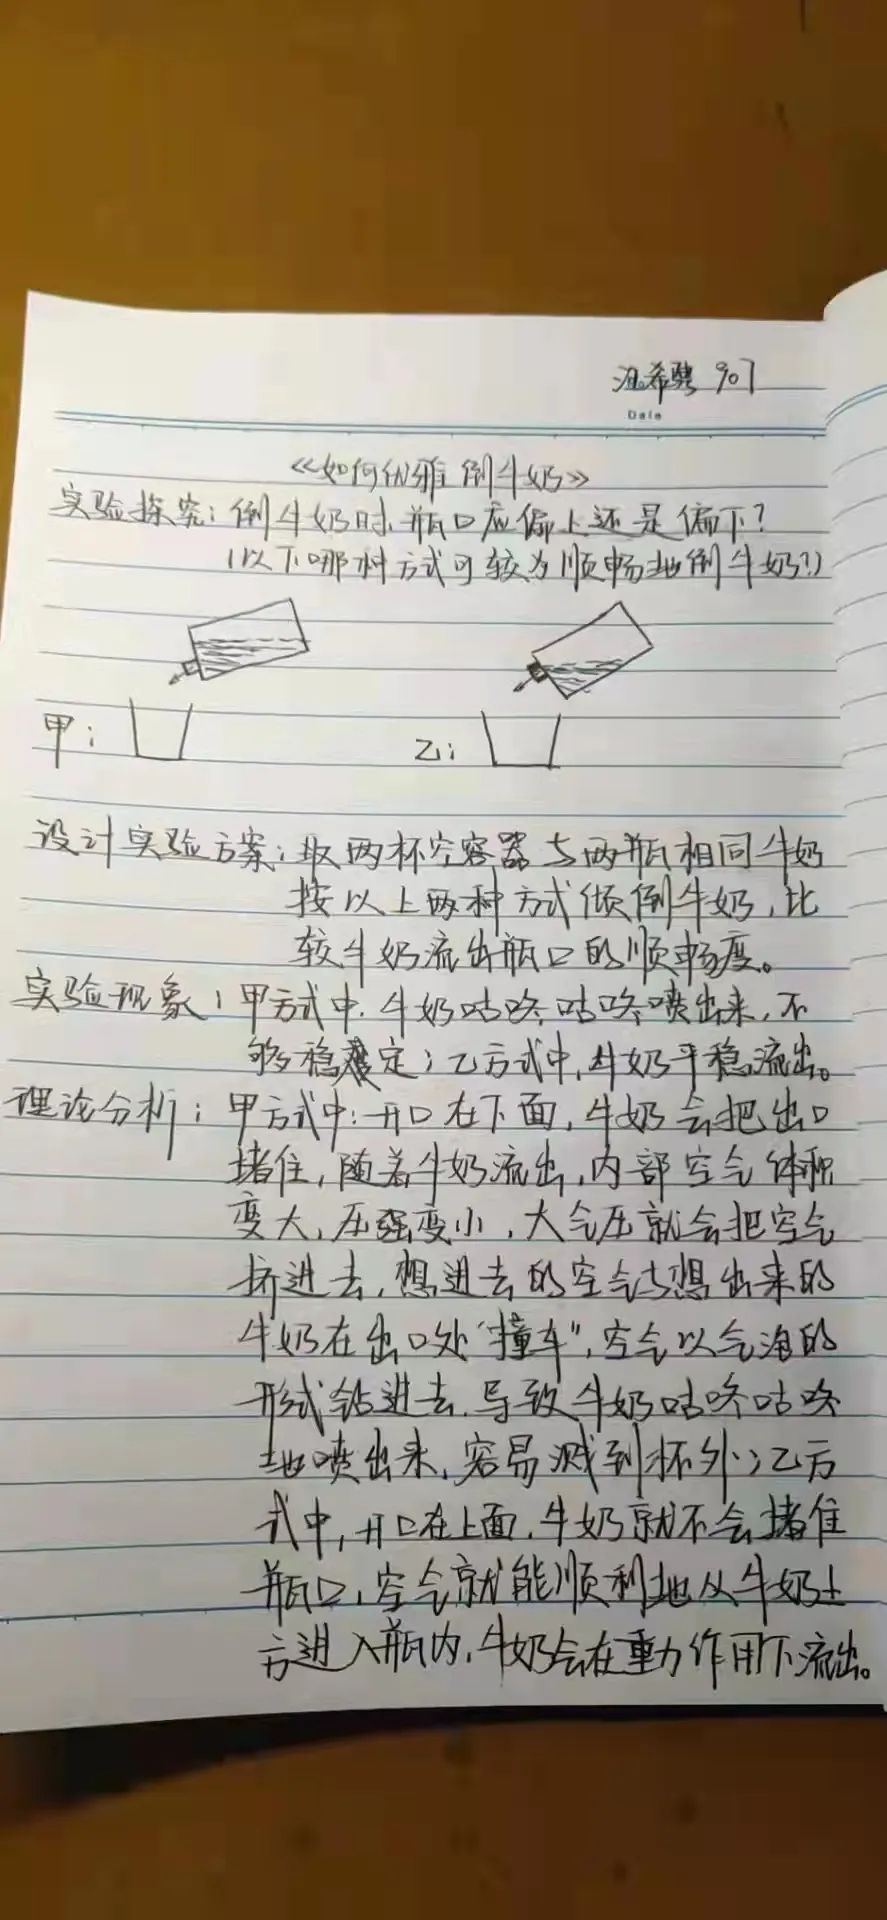 汪希骋 907
Date
《如何优雅倒牛奶》
实验探究：倒牛奶时，瓶口应偏上还是偏下？
（以下哪种方式可较为顺畅地倒牛奶？）
甲： 乙：
设计实验方案：取两杯空容器与两瓶相同牛奶
按以上两种方式倾倒牛奶，比
较牛奶流出瓶口的顺畅度。
实验现象：甲方式中，牛奶咕咚咕咚喷出来，不
够稳定；乙方式中，牛奶平稳流出。
理论分析：甲方式中：开口在下面，牛奶会把出口
堵住，随着牛奶流出，内部空气体积
变大，压强变小，大气压就会把空气
挤进去，想进去的空气与想出来的
牛奶在出口处“撞车”，空气以气泡的
形式钻进去，导致牛奶咕咚咕咚
地喷出来，容易溅到杯外；乙方
式中，开口在上面，牛奶就不会堵住
瓶口，空气就能顺利地从牛奶上
方进入瓶内，牛奶会在重力作用下流出。